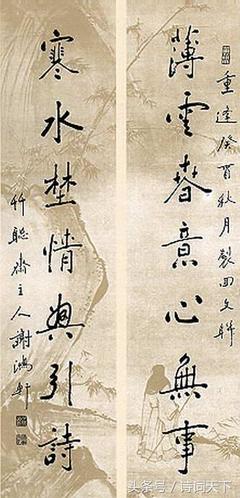 重逢癸酉秋月製回文聯
薄雲春意心無事
寒水埜情興引詩
竹聰齋主人謝鴻軒
头条号/诗词天下